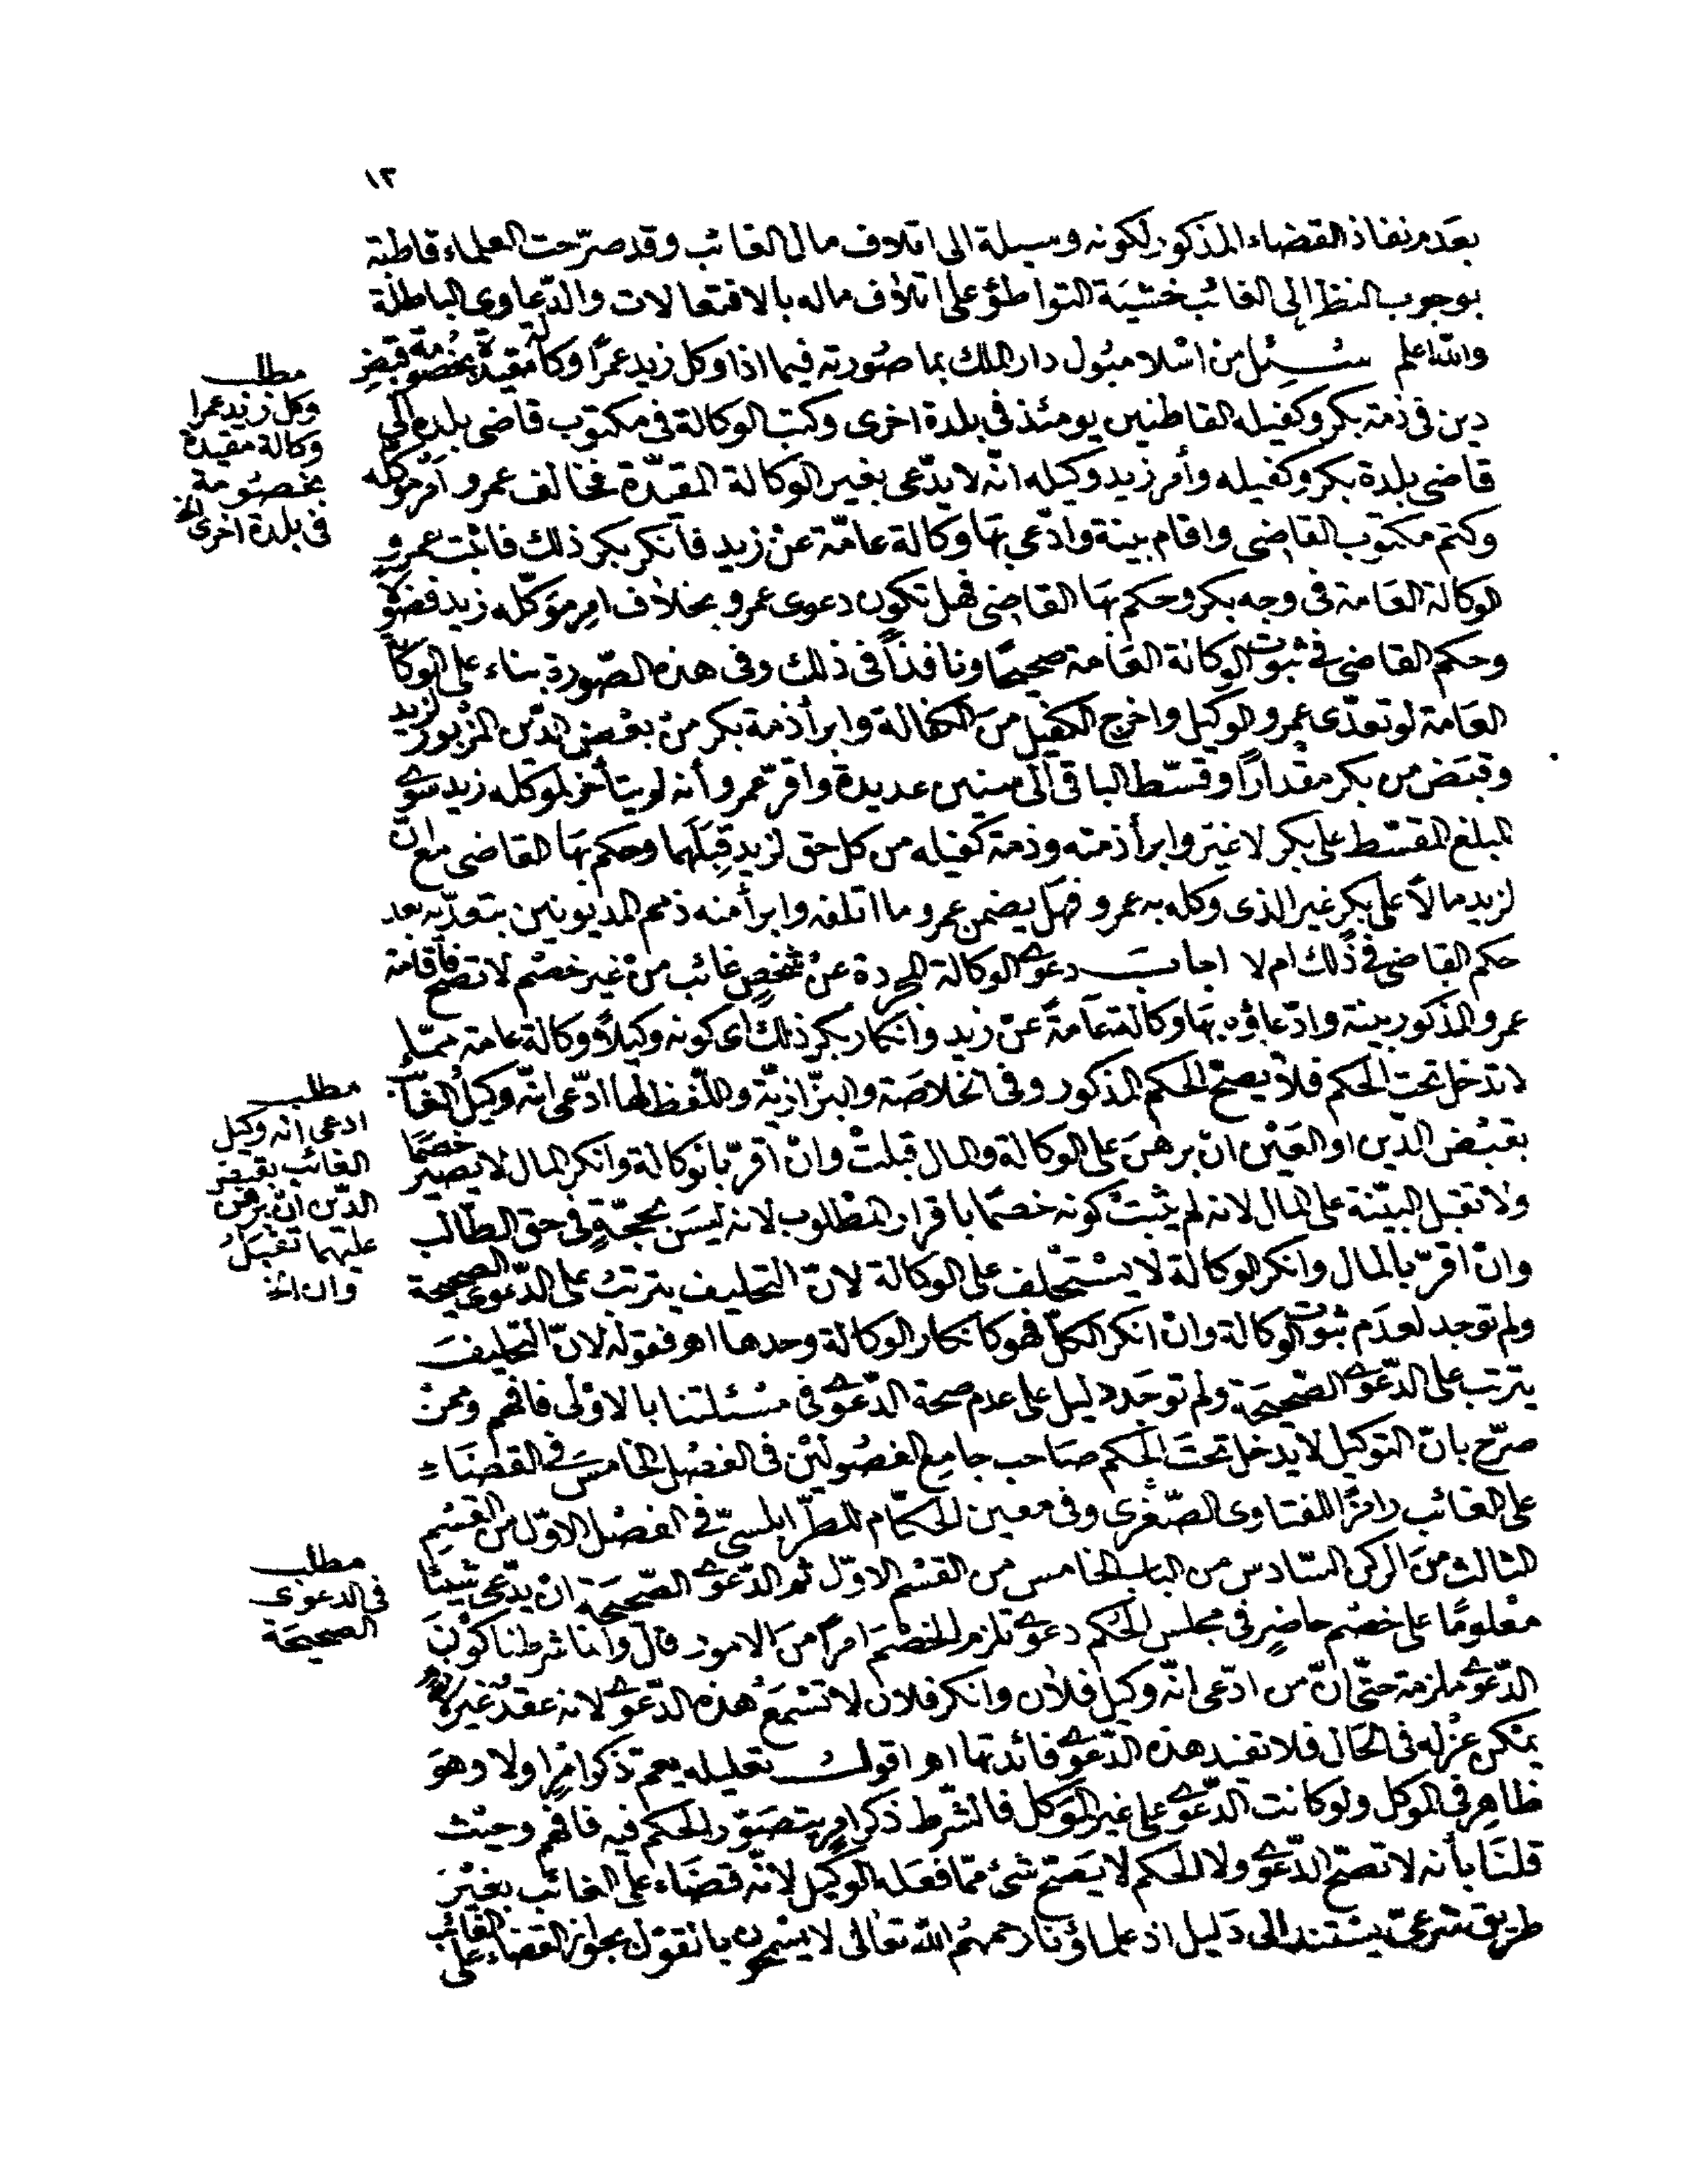 ١٣
بعدم نفاذ القضاء المذكور لكونه وسيلة الى اتلاف مال الغائب وقد صرّحت العلماء قاطبة
بوجوب النظر الى الغائب خشيَة التواطؤ على اتلاف ماله بالافتعالات والدّعاوى الباطلة
والله اعلم سئل من اسلامبول دار الملك بما صُورته فيما اذا وكل زيد عمرًا وكالة مقيدة بخصومة وقبض
دين فى ذمة بكر وكفيله القاطنين يومئذ فى بلدة اخرى وكتب الوكالة فى مكتوب قاضى بلده الى
قاضى بلدة بكر وكفيله وأمر زيد وكيله انّه لا يدّعى بغير الوكالة المقيّدة فخالف عمرو أمر موكله
وكتم مكتوب القاضى واقام بينة وادّعى بها وكالة عامّة عن زيد فأنكر بكر ذلك فاثبت عمرو
الوكالة العامة فى وجه بكر وحكم بها القاضى فهل تكون دعوى عمرو بخلاف امر موكّله زيد فضولا
وحكم القاضى فى ثبوت الوكالة العامة صحيحًا ونافذاً فى ذلك وفى هذه الصّورة بناء على الوكالة
العامة لو تعدّى عمرو الوكيل واخرج الكفيل منَ الكفالة وابرأ ذمة بكر منْ بعْض الدّين المزبور لزيد
وقبَض من بكر مقداراً وقسّط الباقى الى سنين عديدة واقرّ عمرو أنه لم يتأخر لموكله زيد سوى
المبلغ المقسّط على بكر لا غيرَ وابرأ ذمته وذمة كفيله من كل حق لزيد قِبَلَهما وحكم بها القاضى مع انّ
لزيد مالاً على بكر غير الذى وكله به عمرو فهل يضمن عمرو ما اتلفه وابرأ منه ذمم المديونين بتعدّيه بعد
حكم القاضى فى ذلك ام لا اجاب دعوى الوكالة المجردة عنْ شخصٍ غائب منْ غير خصْم لا تصح فاقامة
عمرو المذكور بينة وادّعاؤه بها وكالة عآمةً عنْ زيد وانكار بكر ذلك اى كونه وكيلاً وكالة عامة ممّا
لا تدخل تحت الحكم فلا يصحّ الحكم المذكور وفى الخلاصَة والبزّازيّة واللّفظ لها ادّعى انّه وكيل الغائب
بقبْض الدّين او العَيْن انْ برهنَ على الوكالة والمال قبلتْ وانْ اقرّ بالوكالة وانكر المال لا يصير خصمًا
ولا تقبل البيّنة على المال لانه لم يثبتْ كونه خصْمًا باقرار المطْلوب لانه ليسَ بحجّةٍ فى حق الطّالب
وانْ اقرّ بالمال وانكر الوكالة لا يسْتحْلف على الوكالة لانّ التحليف يترتبُ على الدّعوى الصحيحة
ولم توجد لعدَم ثبوت الوكالة وانْ انكر الكلّ فهو كانكار الوكالة وحدها اهـ فقوله لانّ التحليفَ
يترتب على الدّعوى الصّحيحَة ولم توجَد دليل على عدم صحة الدّعوى فى مسْئلتنا بالاوْلى فافهم وممنْ
صرّح بانّ التوكيل لا يدخل تحتَ الحكم صاحب جامع الفصُوليْن فى الفصْل الخامسَ فى القضَاء
على الغائب رامزًا للفتاوى الصّغرى وفى معين الحكّام للطّرابلسىّ فى الفصْل الاوّل من القسْم
الثالث منَ الركن السّادس من الباب الخامس من القسْم الاوّل ثم الدّعوى الصّحيحَة انْ يدّعى شيئا
معْلومًا على خصْم حاضرٍ فى مجلس الحُكم دعوى تلزم الخصْمَ امرًا منَ الامور قال وانما شرطنا كوْنَ
الدّعوى ملزمة حتّى انّ من ادّعى انّه وكيل فلان وانكر فلان لا تسْمَعُ هذه الدّعوى لانه عقدٌ غير لازم
يمْكن عزْله فى الحَال فلا تفيد هذه الدّعوى فائدتها اهـ اقول تعليله يعمّ ذكر امْرٍ اولا وهوَ
ظاهر فى الموكل ولو كانت الدّعوى على غير الموكل فالشّرط ذكر امرٍ يتصَوّر الحكم فيه فافهم وحيْث
قلنَا بأنه لا تصحّ الدّعوى ولا الحكم لا يَصحّ شئ ممّا فعَله الوكيل لانّه قضَاء على الغائب بغيْر
طريق شرعىّ يسْتند الى دَليل اذ علماؤنا رحمهمُ الله تعَالى لا يسْمحون بالقوْل بجواز القضاء على الغائب
مطلب
وكل زيد عمرا
وكالة مقيدة
بخصومة
فى بلدة اخرى الخ
مطلب
ادعى انه وكيل
الغائب بقبض
الدّين انْ برهن
عليهما تقْبَلُ
وان الخ
مطلب
فى الدعوى
الصحيحَة